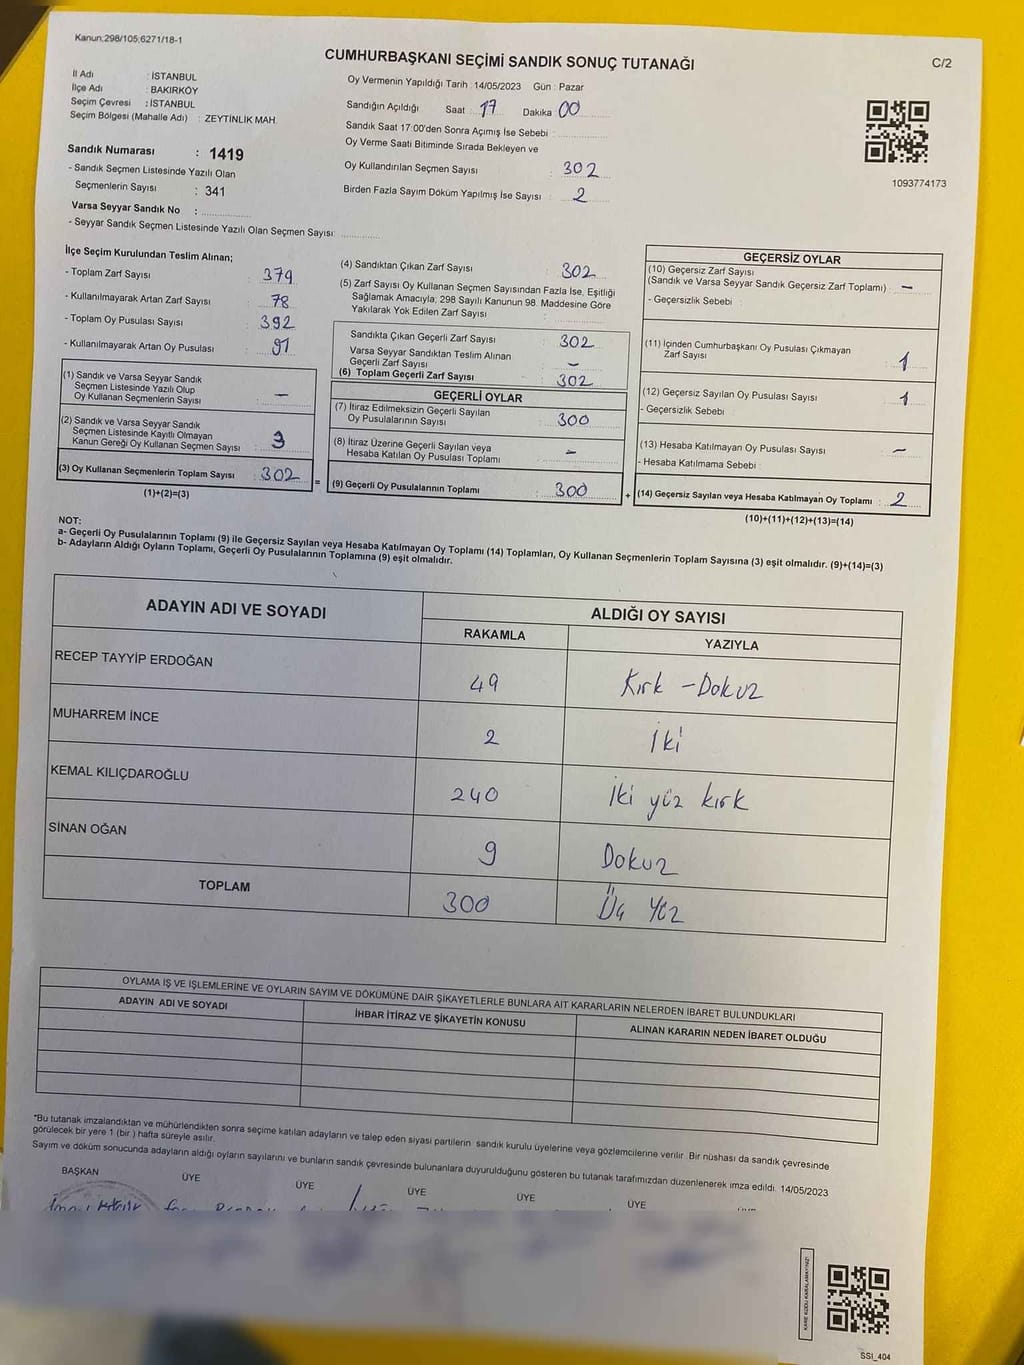 Kanun:298/105;6271/18-1
CUMHURBAŞKANI SEÇİMİ SANDIK SONUÇ TUTANAĞI
C/2
İl Adı : İSTANBUL
İlçe Adı : BAKIRKÖY
Seçim Çevresi : İSTANBUL
Seçim Bölgesi (Mahalle Adı) : ZEYTİNLİK MAH.
Sandık Numarası : 1419
- Sandık Seçmen Listesinde Yazılı Olan
Seçmenlerin Sayısı : 341
Varsa Seyyar Sandık No :
- Seyyar Sandık Seçmen Listesinde Yazılı Olan Seçmen Sayısı:
Oy Vermenin Yapıldığı Tarih : 14/05/2023 Gün : Pazar
Sandığın Açıldığı Saat : 17 Dakika : 00
Sandık Saat 17:00'den Sonra Açımış İse Sebebi :
Oy Verme Saati Bitiminde Sırada Bekleyen ve
Oy Kullandırılan Seçmen Sayısı : 302
Birden Fazla Sayım Döküm Yapılmış İse Sayısı : 2
1093774173
İlçe Seçim Kurulundan Teslim Alınan;
- Toplam Zarf Sayısı : 379
- Kullanılmayarak Artan Zarf Sayısı : 78
- Toplam Oy Pusulası Sayısı : 392
- Kullanılmayarak Artan Oy Pusulası : 91
(1) Sandık ve Varsa Seyyar Sandık
Seçmen Listesinde Yazılı Olup
Oy Kullanan Seçmenlerin Sayısı : -
(2) Sandık ve Varsa Seyyar Sandık
Seçmen Listesinde Kayıtlı Olmayan
Kanun Gereği Oy Kullanan Seçmen Sayısı : 3
(3) Oy Kullanan Seçmenlerin Toplam Sayısı : 302
(1)+(2)=(3)
(4) Sandıktan Çıkan Zarf Sayısı : 302
(5) Zarf Sayısı Oy Kullanan Seçmen Sayısından Fazla İse, Eşitliği
Sağlamak Amacıyla, 298 Sayılı Kanunun 98. Maddesine Göre
Yakılarak Yok Edilen Zarf Sayısı :
Sandıkta Çıkan Geçerli Zarf Sayısı : 302
Varsa Seyyar Sandıktan Teslim Alınan
Geçerli Zarf Sayısı : -
(6) Toplam Geçerli Zarf Sayısı : 302
GEÇERLİ OYLAR
(7) İtiraz Edilmeksizin Geçerli Sayılan
Oy Pusulalarının Sayısı : 300
(8) İtiraz Üzerine Geçerli Sayılan veya
Hesaba Katılan Oy Pusulası Toplamı : -
= (9) Geçerli Oy Pusulalarının Toplamı : 300
GEÇERSİZ OYLAR
(10) Geçersiz Zarf Sayısı
(Sandık ve Varsa Seyyar Sandık Geçersiz Zarf Toplamı) : -
- Geçersizlik Sebebi :
(11) İçinden Cumhurbaşkanı Oy Pusulası Çıkmayan
Zarf Sayısı : 1
(12) Geçersiz Sayılan Oy Pusulası Sayısı : 1
- Geçersizlik Sebebi :
(13) Hesaba Katılmayan Oy Pusulası Sayısı : -
- Hesaba Katılmama Sebebi :
+ (14) Geçersiz Sayılan veya Hesaba Katılmayan Oy Toplamı : 2
(10)+(11)+(12)+(13)=(14)
NOT:
a- Geçerli Oy Pusulalarının Toplamı (9) ile Geçersiz Sayılan veya Hesaba Katılmayan Oy Toplamı (14) Toplamları, Oy Kullanan Seçmenlerin Toplam Sayısına (3) eşit olmalıdır. (9)+(14)=(3)
b- Adayların Aldığı Oyların Toplamı, Geçerli Oy Pusulalarının Toplamına (9) eşit olmalıdır.
ADAYIN ADI VE SOYADI
ALDIĞI OY SAYISI
RAKAMLA YAZIYLA
RECEP TAYYİP ERDOĞAN 49 Kırk - Dokuz
MUHARREM İNCE 2 İki
KEMAL KILIÇDAROĞLU 240 İki yüz kırk
SİNAN OĞAN 9 Dokuz
TOPLAM 300 Üç Yüz
OYLAMA İŞ VE İŞLEMLERİNE VE OYLARIN SAYIM VE DÖKÜMÜNE DAİR ŞİKAYETLERLE BUNLARA AİT KARARLARIN NELERDEN İBARET BULUNDUKLARI
ADAYIN ADI VE SOYADI İHBAR İTİRAZ VE ŞİKAYETİN KONUSU ALINAN KARARIN NEDEN İBARET OLDUĞU
*Bu tutanak imzalandıktan ve mühürlendikten sonra seçime katılan adayların ve talep eden siyasi partilerin sandık kurulu üyelerine veya gözlemcilerine verilir. Bir nüshası da sandık çevresinde
görülecek bir yere 1 (bir ) hafta süreyle asılır.
Sayım ve döküm sonucunda adayların aldığı oyların sayılarını ve bunların sandık çevresinde bulunanlara duyurulduğunu gösteren bu tutanak tarafımızdan düzenlenerek imza edildi. 14/05/2023
BAŞKAN ÜYE ÜYE ÜYE ÜYE ÜYE
KARE KODU KARALAMAYINIZ!
SSİ_404